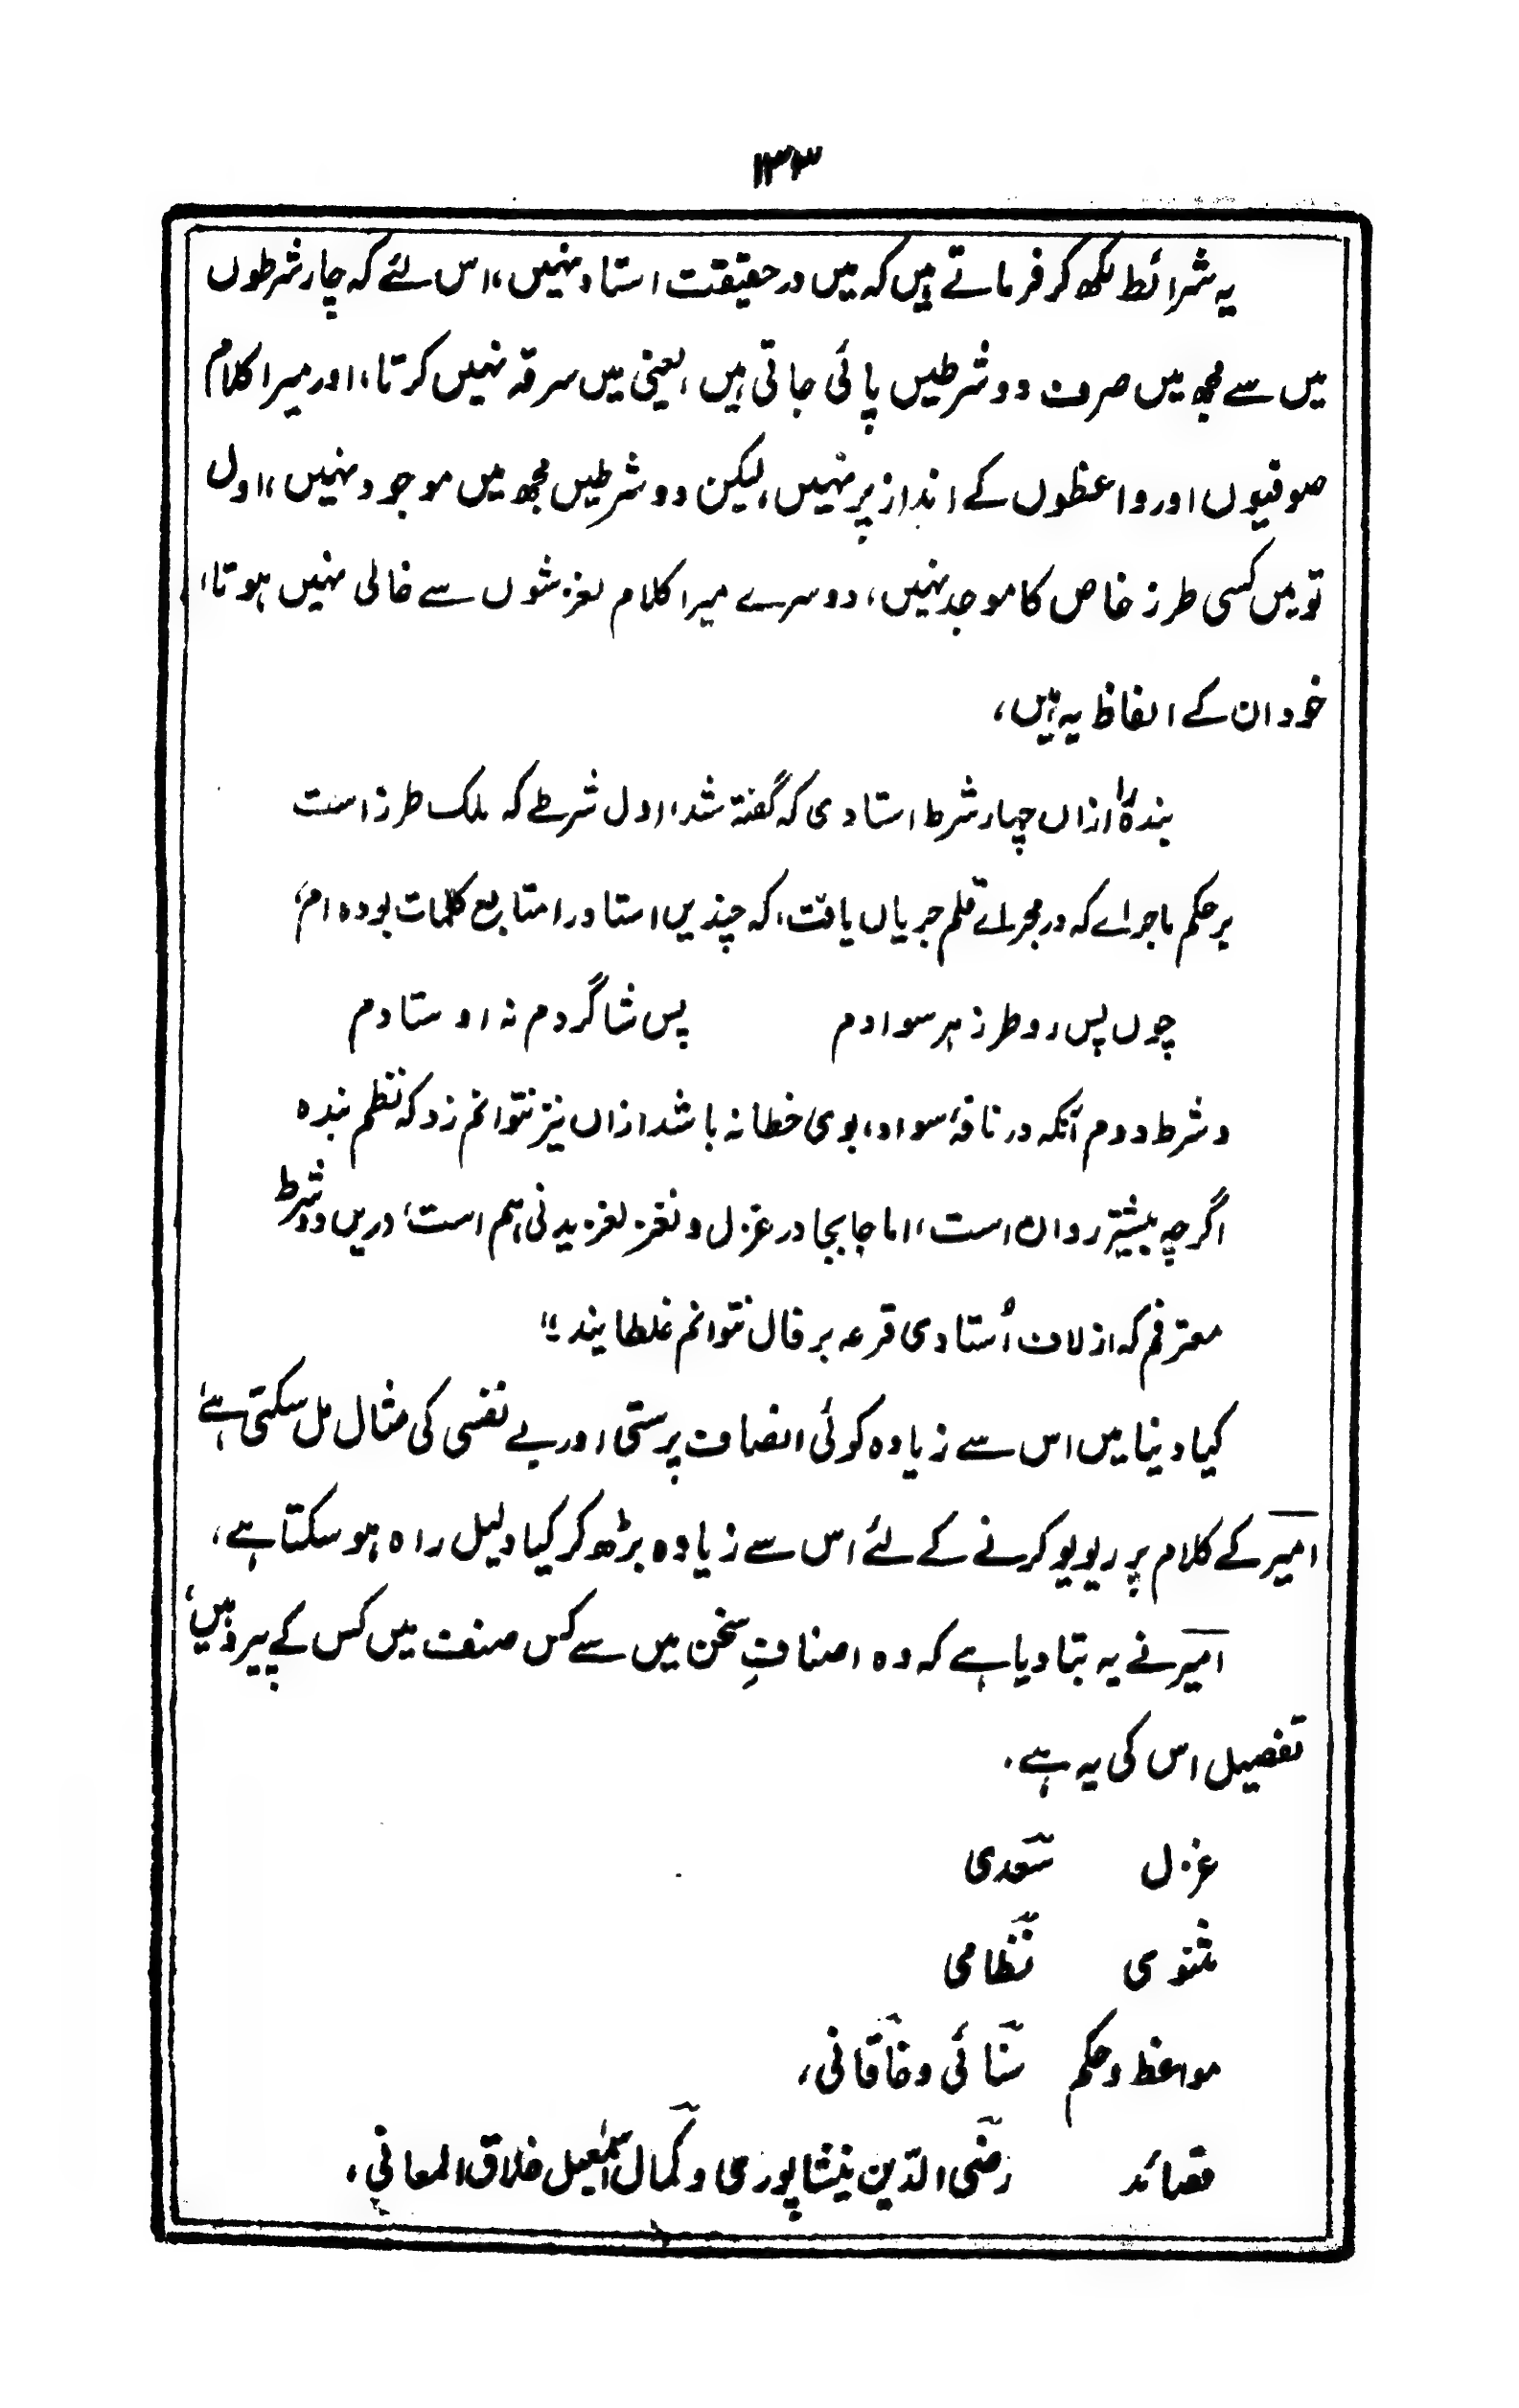 ۱۳۳
یہ شرائط لکھ کر فرماتے ہیں کہ میں درحقیقت استاد نہیں، اس لئے کہ چار شرطوں
میں سے مجھ میں صرف دو شرطیں پائی جاتی ہیں، یعنی میں سرقہ نہیں کرتا، اور میرا کلام
صوفیوں اور واعظوں کے انداز پر نہیں، لیکن دو شرطیں مجھ میں موجود نہیں، اول
تو میں کسی طرز خاص کا موجد نہیں، دوسرے میرا کلام لغزشوں سے خالی نہیں ہوتا،
خود ان کے الفاظ یہ ہیں،
بندہ را ازاں چہار شرط استادی کہ گفتہ شد، اول شرطے کہ ملک طرز است
بر حکم ماجرائے کہ در مجرائے قلم جریاں یافت، کہ چندیں استاد را متابع کلمات بودہ ام،
چوں پس رو طرز ہر سوادم پس شاگردم نہ اوستادم
و شرط دوم آنکہ در نافۂ سواد، بوی خطا نہ باشد ازاں نیز نتوانم زد کہ نظم بندہ
اگرچہ بیشتر روان است، اما جابجا در غزل و نغز لغزیدنی ہم است، دریں دو شرط
معترفم کہ از لاف اُستادی قرعہ بر فال نتوانم غلطایند"
کیا دنیا میں اس سے زیادہ کوئی انصاف پرستی اور بے نفسی کی مثال مل سکتی ہے،
امیر کے کلام پر ریویو کرنے کے لئے اس سے زیادہ بڑھ کر کیا دلیل راہ ہو سکتا ہے،
امیر نے یہ بتا دیا ہے کہ وہ اصنافِ سخن میں سے کس صنف میں کس کے پیرو ہیں،
تفصیل اس کی یہ ہے،
غزل سعدی
مثنوی نظامی
مواعظ و حکم سنائی و خاقانی،
قصائد رضی الدین نیشاپوری و کمال اسمٰعیل خلاق المعانی،